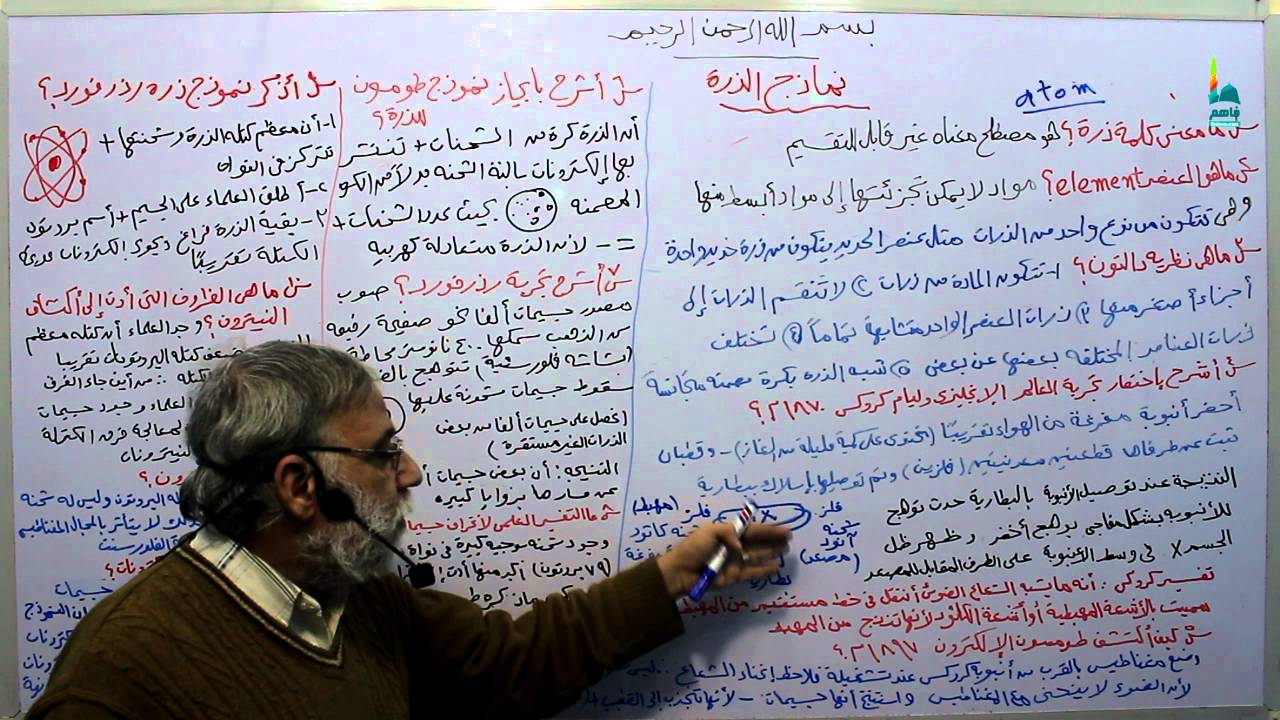 بسم الله الرحمن الرحيم
نماذج الذرة
atom
فاهم
س ما معنى كلمة ذرة؟ هو مصطلح معناه غير قابل للتقسيم
س ما هو العنصر element؟ مواد لا يمكن تجزئتها إلى مواد أبسط منها
وهي تتكون من نوع واحد من الذرات مثل عنصر الحديد يتكون من ذرة حديد واحدة
س ما هي نظرية دالتون؟ ١- تتكون المادة من ذرات ٢) لا تنقسم الذرات إلى
أجزاء أصغر منها ٣) ذرات العنصر الواحد متشابهة تماماً ٤) تختلف
ذرات العناصر المختلفة بعضها عن بعض ٥) شبه الذرة بكرة مصمته متجانسة
س أشرح باختصار تجربة العالم الإنجليزي وليام كروكس ١٨٧٠م؟
أحضر أنبوبة مفرغة من الهواء تقريبًا (تحتوي على كمية قليلة من الغاز) - وقطبان
ثبت عند طرفاها قطعتين معدنيتين (فلزين) وتم توصيلها بإسلاك ببطارية
النتيجة عند توصيل الأنبوبة بالبطارية حدث توهج
للأنبوبة بشكل مفاجئ بوهج أخضر وظهر ظل
الجسم X في وسط الأنبوبة على الطرف المقابل للمصعد
فلز
شحنة
آنود
(مصعد)
X
فلز (مهبط)
كاتود
بطارية
تفسير كروكس :. أنه ما يشبه الشعاع الضوئي أنتقل في خط مستقيم من المهبط
سميت بالأشعة المهبطية أو أشعة الكاثود لأنها تنتج من المهبط
س كيف أكتشف طومسون الإلكترون ١٨٩٧م؟
وضع مغناطيس بالقرب من أنبوبة كروكس عند تشغيله فلاحظ إنحناء الشعاع :. ليس
لأن الضوء لا ينحنى مع المغناطيس واستنتج أنها جسيمات - لأنها تنجذب إلى القطب +
س أشرح بإيجاز نموذج طومسون
للذرة؟
أن الذرة كرة من الشحنات + تنتشر
بها إلكترونات سالبة الشحنة
المصمته بحيث عدد الشحنات +
= - لأن الذرة متعادلة كهربيه
س أشرح تجربة رذرفورد؟ صوب
مصدر جسيمات ألفا نحو صفيحة رقيقة
من الذهب سمكها ٤٠٠ نانومتر محاطة
(بشاشة فلورسنتية) تتوهج
سقوط جسيمات مشحونة عليها
(نحصل على جسيمات ألفا من بعض
الذرات الغير مستقرة)
النتيجه: أن بعض جسيمات
عن مسارها بزوايا كبيره
س ما التفسير العلمي لأنحراف
وجود شحنة موجبه كبيرة في نواة
(٧٩ بروتون) أكبر منها
س أذكر نموذج ذره رذرفورد؟
١- أن معظم كتلة الذرة وشحنتها +
تتركز في النواه
٢- أطلق العلماء على الجسيم + أسم بروتون
٣- بقية الذرة فراغ ويحوى إلكترونات عديمة
الكتلة تقريبًا
س ما هي الظروف التي أدت إلى أكتشاف
النيترون؟ وجد العلماء أن كتله معظم
ضعف كتلة البروتونات تقريبا
:. من أين جاء الفرق
العلماء وجود جسيمات
لمعالجة فرق الكتلة
النيترونات
كتلة البروتون وليس له شحنة
لا يتأثر بالمجال المغناطيسي
الفلورسنت
جسيمات
النموذج